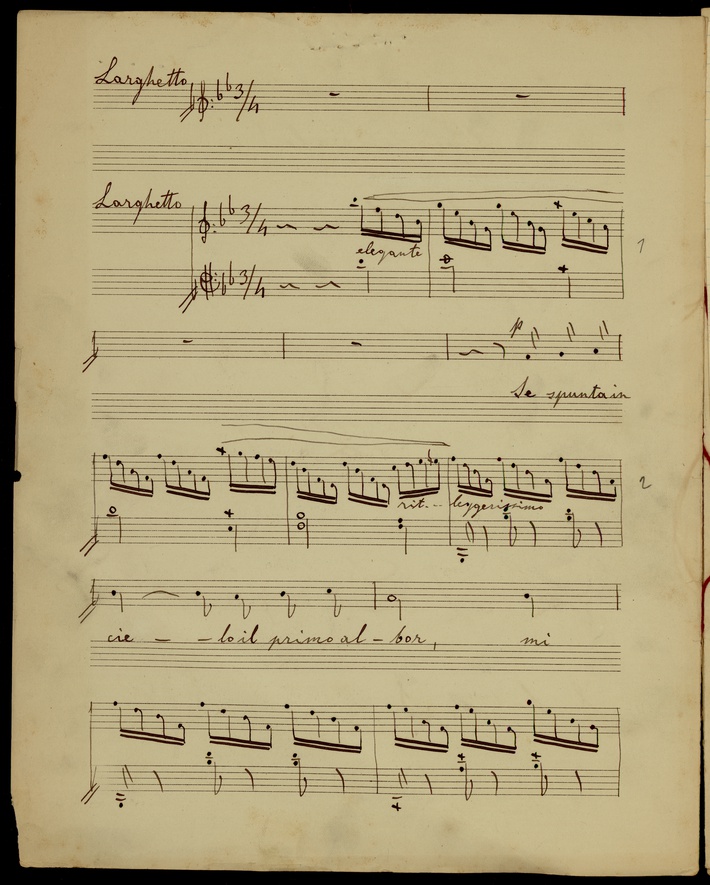 Larghetto 3/4
Larghetto 3/4
elegante
3/4
1
p
Se spunta in
2
rit. - - leggerissimo
cie - - lo il primo al - bor, mi